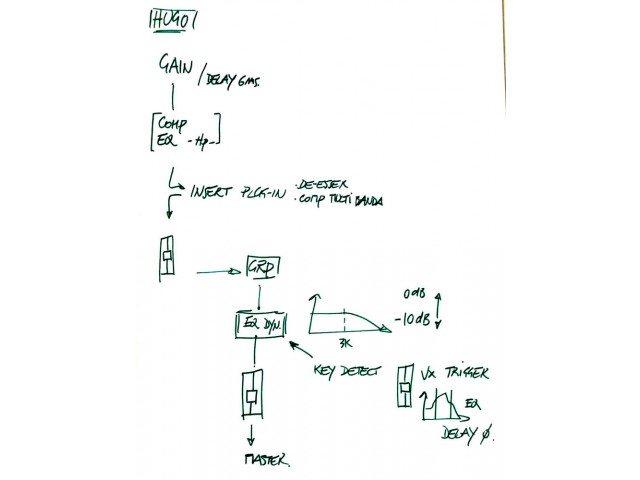 HUGO
GAIN / DELAY 6ms.
COMP
EQ -Hp-
INSERT PLUG-IN · DE-ESSER
· COMP MULTIBANDA
GRP
EQ DYN.
0dB
-10dB
3K
KEY DETECT
VX TRIGGER
EQ
DELAY Ø.
MASTER